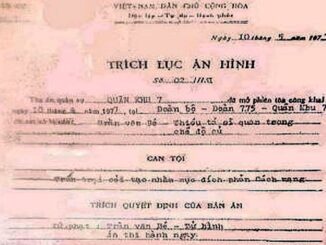 VIỆT-NAM DÂN CHỦ CỘNG HÒA
Độc lập - Tự do - Hạnh phúc
Ngày, 10 tháng 5 năm 197
TRÍCH LỤC ÁN HÌNH
Số 02
Tòa án quân sự QUÂN KHU 7 đã mở phiên tòa công khai
ngày 10 tháng 5 năm 1977 tại Đoàn bộ - Đoàn 775 - Quân Khu 7
Trần văn Bé - Thiếu tá sĩ quan trong
chế độ cũ
CAN TỘI
Trốn trại cải tạo nhằm mục đích phản Cách mạng
TRÍCH QUYẾT ĐỊNH CỦA BẢN ÁN
Xử phạt: Trần văn Bé - Tử hình
án thi hành ngay.